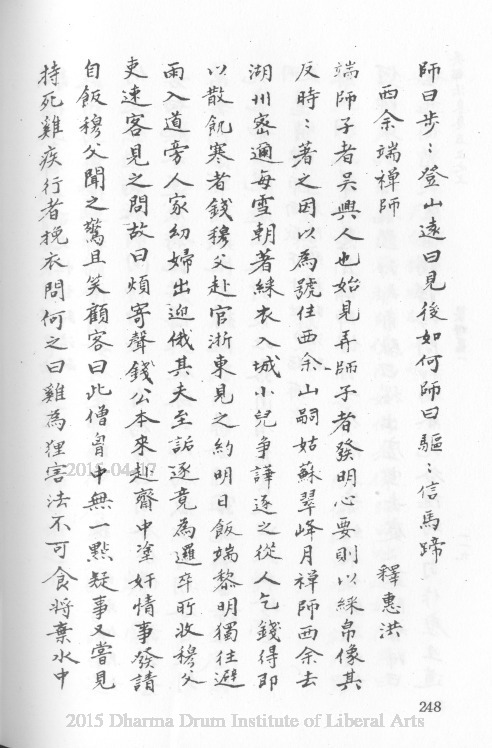 師曰步〻登山遠曰見後如何師曰驅〻信馬蹄
西余端禪師 釋惠洪
端師子者吳興人也始見弄師子者發明心要則以綵帛像其
反時〻著之因以為號住西余山嗣姑蘇翠峰月禪師西余去
湖州密邇每雪朝著綵衣入城小兒爭譁逐之從人乞錢得即
以散飢寒者錢穆父赴官浙東見之約明日飯端黎明獨往避
雨入道旁人家幼婦出迎俄其夫至詬逐竟為邏卒所收穆父
吏速客見之問故曰煩寄聲錢公本來赴齋中塗奸情事發請
自飯穆父聞之驚且笑顧客曰此僧胷中無一點疑事又嘗見
持死雞疾行者挽衣問何之曰雞為狸害法不可食將棄水中
248
2015-04-07
2015 Dharma Drum Institute of Liberal Arts